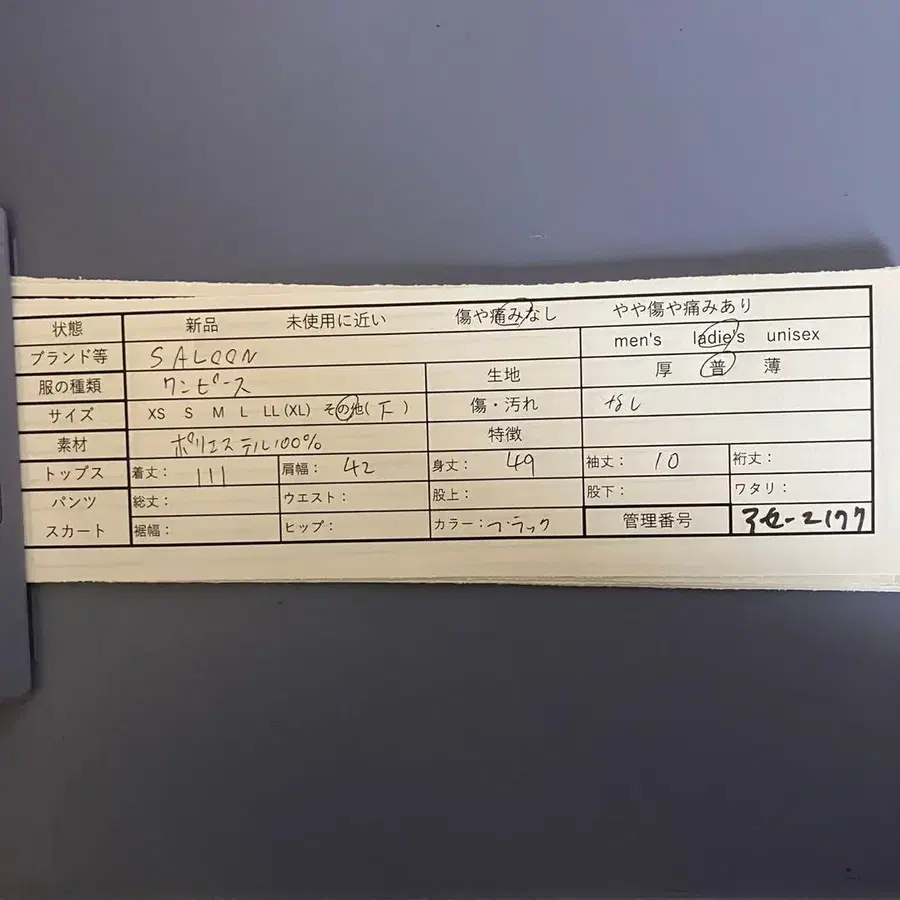 状態 新品 未使用に近い 傷や痛みなし やや傷や痛みあり
ブランド等 SALOON men's ladie's unisex
服の種類 ワンピース 生地 厚 普 薄
サイズ XS S M L LL(XL) その他( F ) 傷・汚れ なし
素材 ポリエステル100% 特徴
トップス 着丈: 111 肩幅: 42 身丈: 49 袖丈: 10 裄丈:
パンツ 総丈: ウエスト: 股上: 股下: ワタリ:
スカート 裾幅: ヒップ: カラー:ブラック 管理番号 -2177